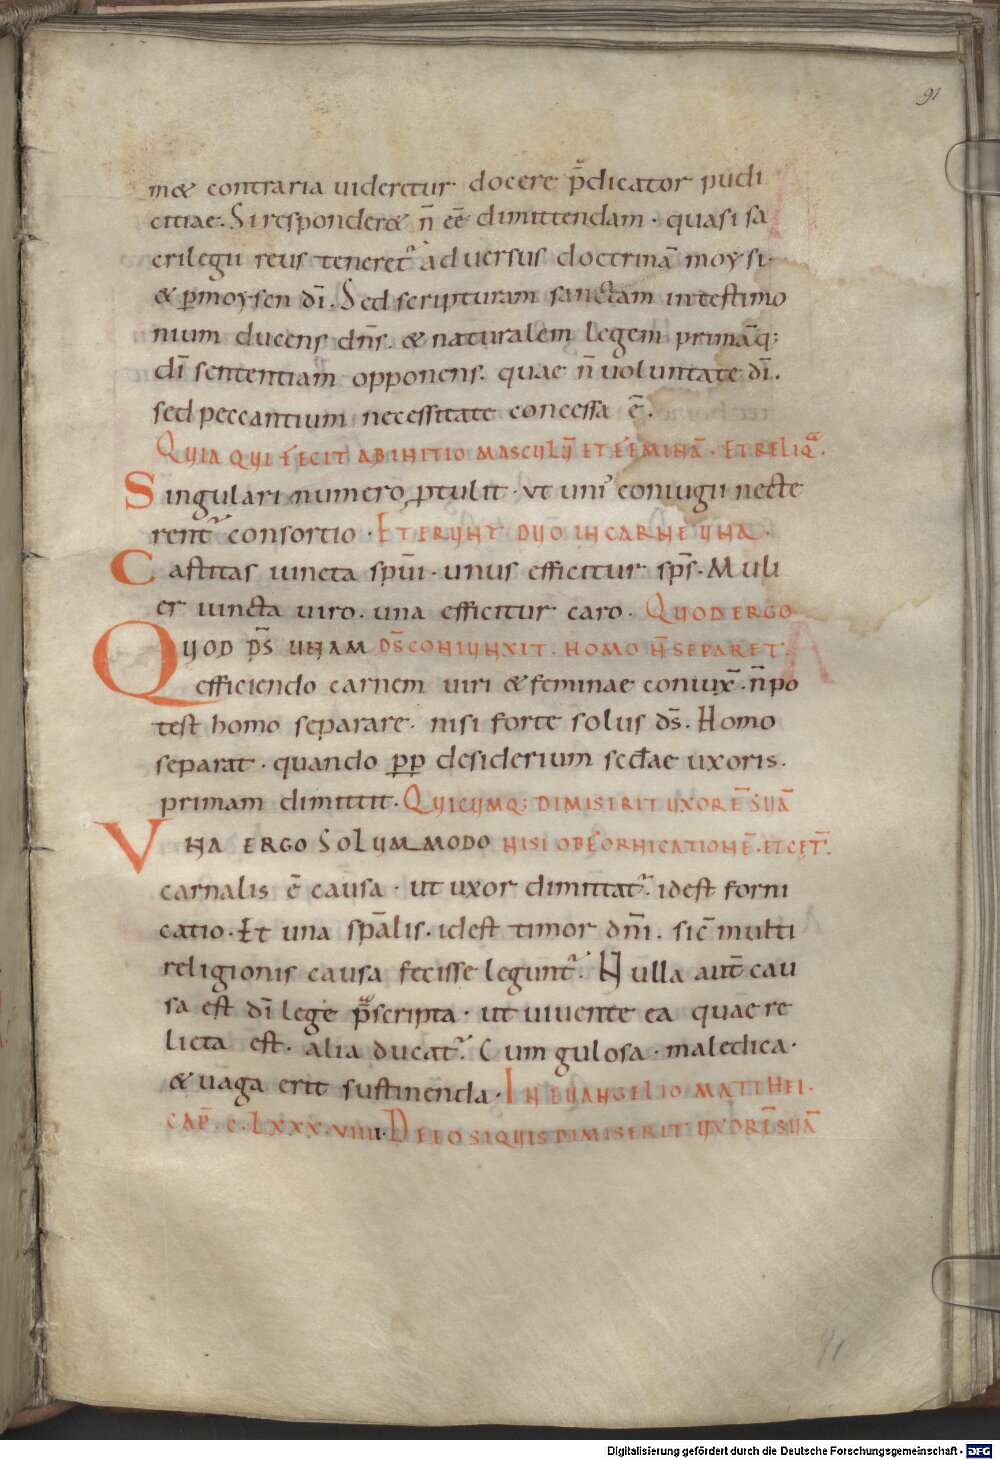 91
mꝫ contraria uideretur docere p̄dicator pudi
citiae. Si responderꝫ n̄ eē dimittendam · quasi sa
crilegii reus teneret᷑ aduersus doctrinā moysi·
& p̄ moysen dī. Sed scripturam sanctam in testimo
nium ducens dn̄s. & naturalem legem primāq:
dī sententiam opponens. quae n̄ uoluntate dī.
sed peccantium necessitate concessa ē.
QUIA QUI FECIT AB INITIO MASCULŪ ET FEMINĀ. ET RELIQ.
Singulari numero ꝓtulit · ut uni᾿ coniugii necte
rent᷑ consortio · ET ERUNT DUO IN CARNE UNA.
Castitas iuncta spūi · unus efficitur sp̄s. Muli
er iuncta uiro. una efficitur caro. QUOD ERGO
QUOD DS̄ UNAM DS̄ CONIUNXIT. HOMO N̄ SEPARET.
efficiendo carnem uiri & feminae coniux̄. n̄ po
test homo separare. nisi forte solus ds̄. Homo
separat. quando ꝓp desiderium sec̄dae uxoris.
primam dimittit. QUICUMQ: DIMISERIT UXORĒ SUĀ
UNA ERGO SOLUMMODO NISI OB FORNICATIONĒ. ET CET̄.
carnalis ē causa · ut uxor dimittat᷑. id est forni
catio. Et una spālis. id est timor dn̄i. sic̄ multi
religionis causa fecisse legunt᷑. Nulla aut̄ cau
sa est dī lege p̄scripta · ut uiuente ea quae re
licta est. alia ducat᷑. Cum gulosa · maledica ·
& uaga erit sustinenda. IN EUANGELIO MATTHEI.
CAP̄. C. LXXX. VIIII. DE EO SI QUIS DIMISERIT UXORĒ SUĀ
91
Digitalisierung gefördert durch die Deutsche Forschungsgemeinschaft - DFG